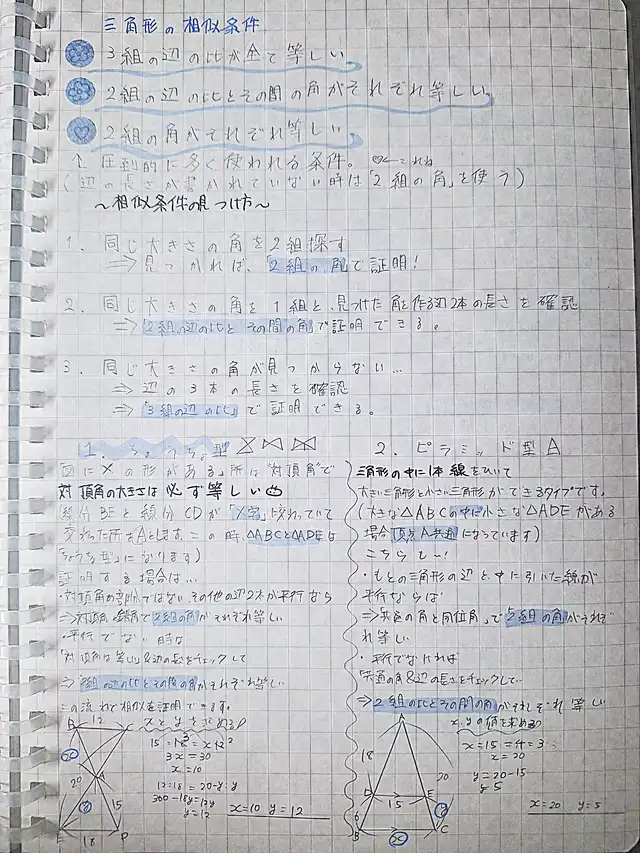 三角形の相似条件
3組の辺の比が全て等しい
2組の辺の比とその間の角がそれぞれ等しい
2組の角がそれぞれ等しい
↑ 圧倒的に多く使われる条件。 ♡←これね
(辺の長さが書かれていない時は「2組の角」を使う)
〜相似条件の見つけ方〜
1. 同じ大きさの角を2組探す
⇒見つかれば、「2組の角」で証明!
2. 同じ大きさの角を1組と、見つけた角を作る辺2本の長さを確認
⇒「2組の辺の比とその間の角」で証明できる。
3. 同じ大きさの角が見つからない...
⇒辺の3本の長さを確認
⇒「3組の辺の比」で証明できる。
1. ちょうちょ型
図に×の形がある」所は"対頂角"で
対頂角の大きさは必ず等しい
(線分BEと線分CDが「×字」に
交わった所をAとします。この時、△ABCと△ADEは
「ちょうちょ型」になります)
証明する場合は...
・対頂角の部分ではないその他の辺2本が平行なら
⇒対頂角、錯角で「2組の角」がそれぞれ等しい
・平行でない時は
「対頂角は等しい」&辺の長さをチェックして
⇒「2組の辺の比とその間の角」がそれぞれ等しい
この流れで相似を証明できます。
xとyを求める
B 12 C
x
20
A
y 15
E 18 D
3x=30
x=10
12:18=20-y:y
360-18y=12y
y=12
x=10 y=12
2. ピラミッド型
三角形の中に1本線をひいて
大きい三角形と小さい三角形ができるタイプです。
(大きな△ABCの中に小さな△ADEがある
場合 頂点A共通になっています)
こちらも〜!
・もとの三角形の辺と、中に引いた線が
平行ならば
⇒共通の角と同位角」で「2組の角」がそれぞ
れ等しい
・平行でなければ
「共通の角&辺の長さをチェックして...
⇒2組の比とその間の角」がそれぞれ等しい
x,yの値を求める
A
18
20
D 15 E
6 y
B x C
x:15=4:3
x=20
y=20-15
y=5
x=20 y=5